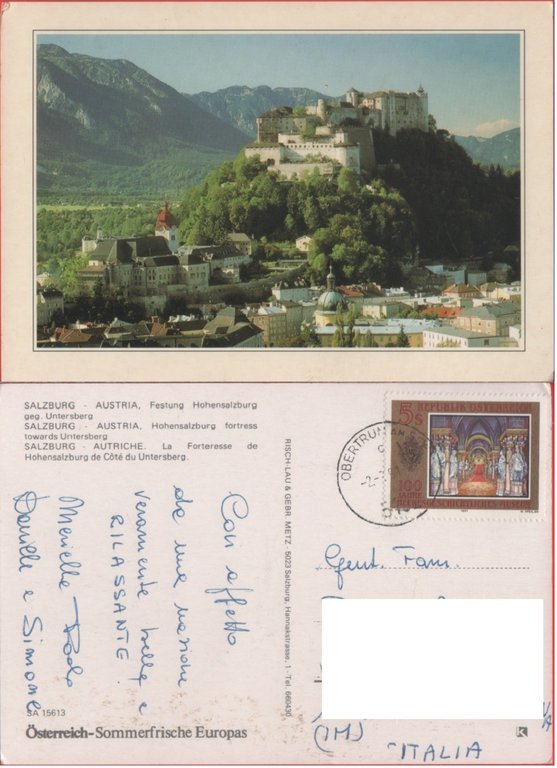 SALZBURG - AUSTRIA, Festung Hohensalzburg
geg. Untersberg
SALZBURG - AUSTRIA, Hohensalzburg fortress
towards Untersberg
SALZBURG - AUTRICHE. La Forteresse de
Hohensalzburg de Côté du Untersberg.
Con affetto
da una nazione
veramente bella e
RILASSANTE.
Mariella Paolo
Daniele e Simone
SA 15613
Österreich-Sommerfrische Europas
RISCH-LAU & GEBR. METZ, 5023 Salzburg, Hannakstrasse, 1 - Tel. 660430
OBERTRUM AM
5s REPUBLIK ÖSTERREICH
100 JAHRE
HEERESGESCHICHTLICHES MUSEUM
Gent. Fam.
(IM)
ITALIA
K